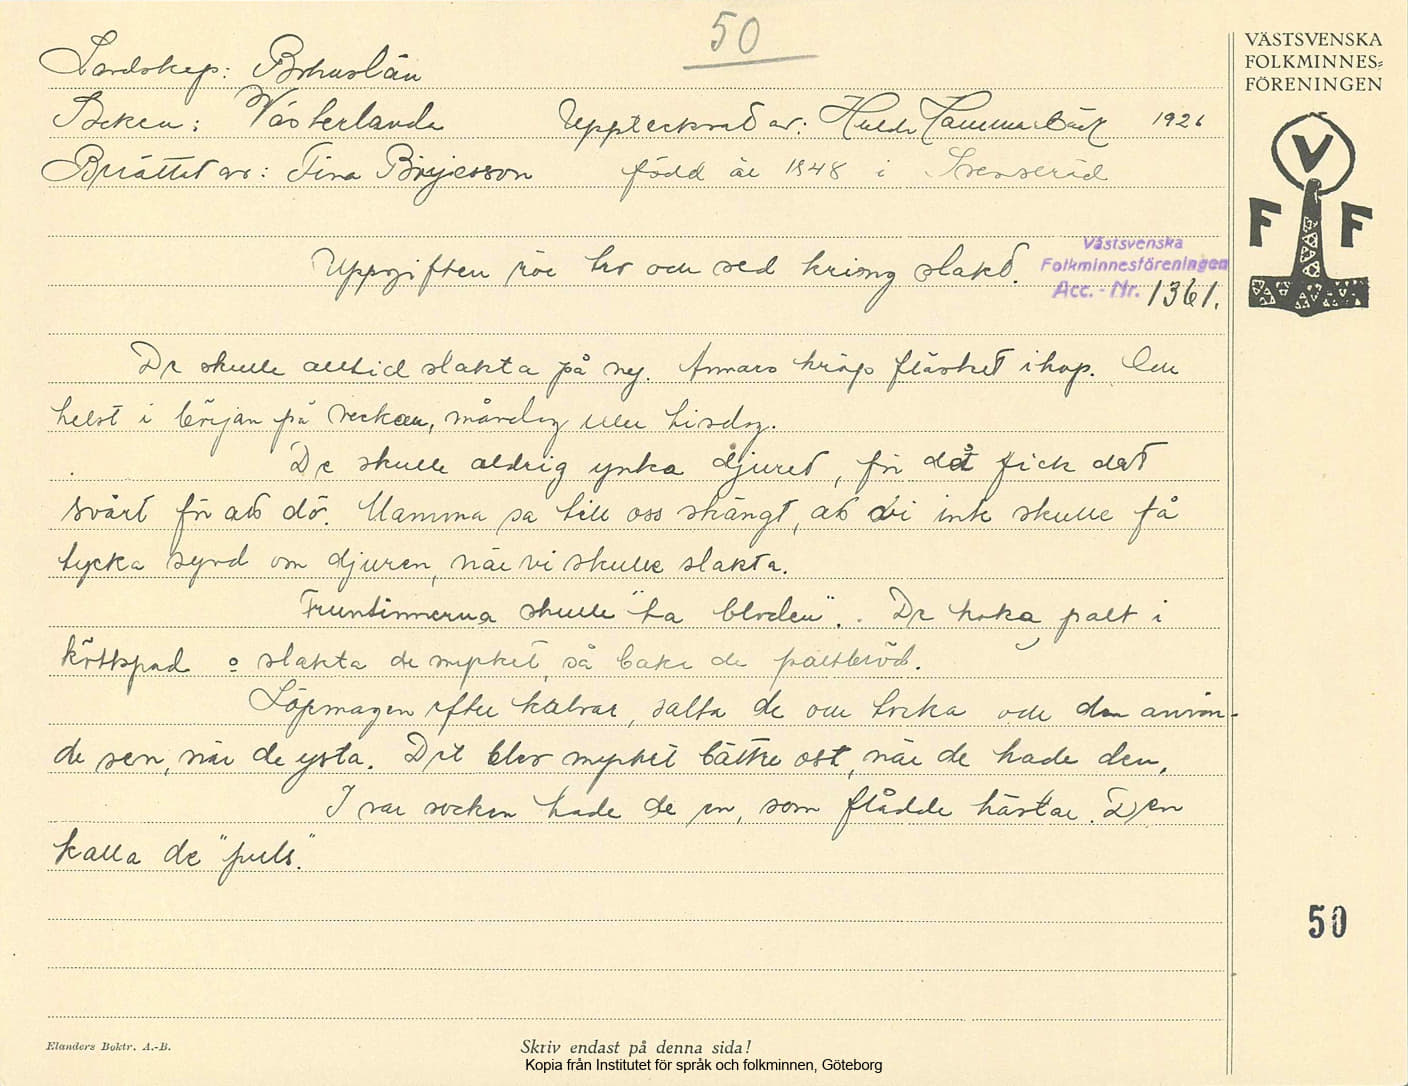 50
VÄSTSVENSKA
FOLKMINNES=
FÖRENINGEN
V
F F
Landskap: Bohuslän
Socken: Västerlanda Upptecknat av: Hulda Hammarbäck 1926
Berättat av: Tina Börjesson född år 1848 i Svenseröd
Uppgifter rör tro och sed kring slakt.
Västsvenska
Folkminnesföreningen
Acc. - Nr. 1361.
De skulle alltid slakta på ny. Annars kröp fläsket ihop. Och
helst i början på veckan, måndag eller tisdag.
De skulle aldrig ynka djuret, för då fick det
svårt för att dö. Mamma sa till oss strängt, att vi inte skulle få
tycka synd om djuren, när vi skulle slakta.
Fruntimmerna skulle "ta bloden". De koka palt i
köttspad o slakta de mycket, så baka de paltbröd.
Löpmagen efter kalvar, salta de och torka och den använ-
de sen, när de ysta. Det blev mycket bättre ost, när de hade den.
I var socken hade de en, som flådde hästar. Den
kalla de "puls".
50
Elanders Boktr. A.-B.
Skriv endast på denna sida!
Kopia från Institutet för språk och folkminnen, Göteborg